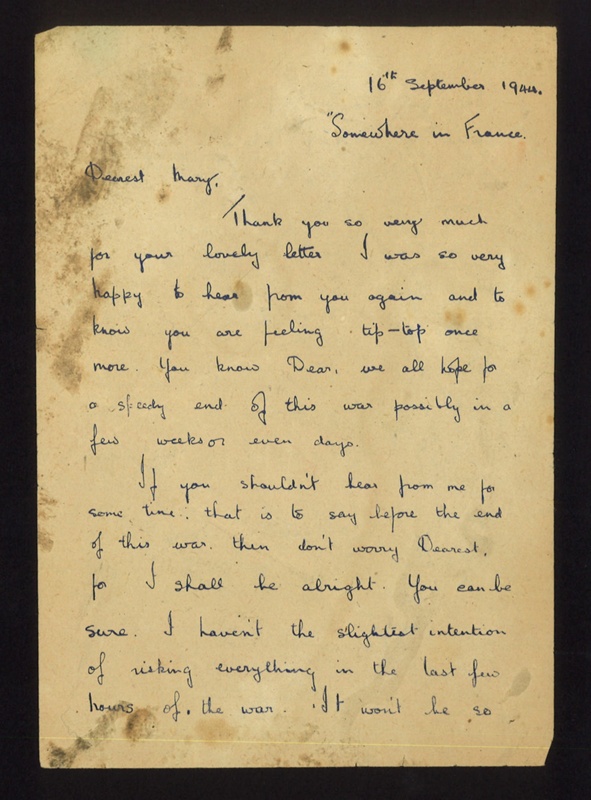 16th September 1944.
"Somewhere in France.
Dearest Mary,
Thank you so very much
for your lovely letter I was so very
happy to hear from you again and to
know you are feeling tip-top once
more. You know Dear, we all hope for
a speedy end of this war possibly in a
few weeks or even days.
If you shouldn't hear from me for
some time, that is to say before the end
of this war. then don't worry Dearest,
for I shall be alright. You can be
sure. I haven't the slightest intention
of risking everything in the last few
hours of. the war. It won't be so